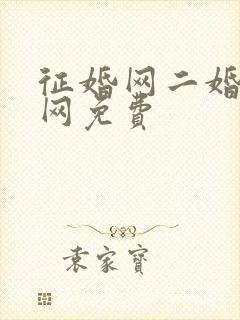 征婚网二婚
网免费
袁家寶